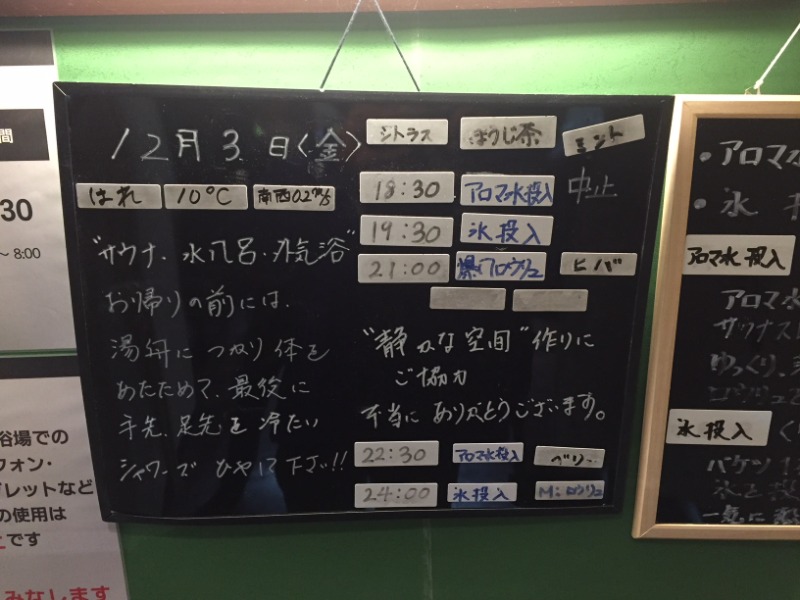 12月3日(金)
シトラス ほうじ茶 ミント
はれ 10℃ 南西0.2m/s
18:30 アロマ水投入 中止
19:30 氷投入
21:00 爆アロウリュ ヒバ
"サウナ・水風呂・外気浴"
お帰りの前には、
湯舟につかり体を
あたためて、最後に
手先、足先を冷たい
シャワーで ひやして下さい!!
"静かな空間"作りに
ご協力
本当に ありがとうございます。
22:30 アロマ水投入 ベリー
24:00 氷投入 Mixロウリュ
間
30
~ 8:00
浴場での
フォン・
ブレットなど
の使用は
です
みなします
・アロマ水
・氷
アロマ水 投入
アロマ
サウナス
ゆっくり、
氷 投入
バケツ
氷を投
一気に